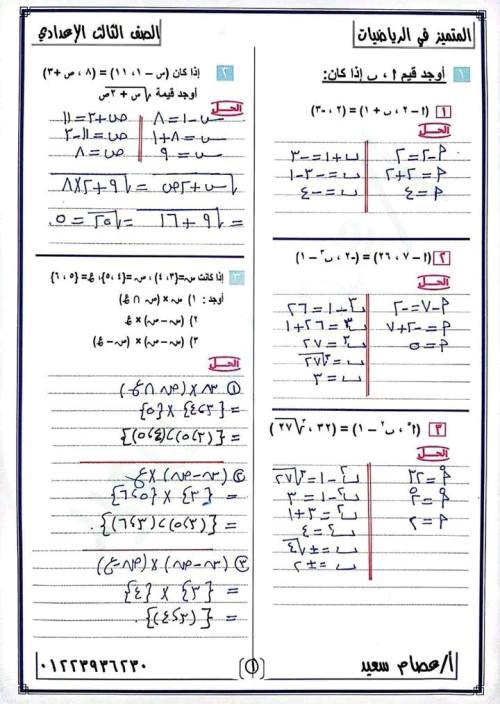 المتميز في الرياضيات
الصف الثالث الإعدادي
١ أوجد قيم أ ، ب إذا كان:
١ (أ − ٢ ، ب + ١) = (٢ ، −٣)
الحل
أ − ٢ = ٢
أ = ٢ + ٢
أ = ٤
ب + ١ = −٣
ب = −٣ − ١
ب = −٤
٢ (أ − ٧ ، ٢٦) = (−٢ ، ب³ − ١)
الحل
أ − ٧ = −٢
أ = −٢ + ٧
أ = ٥
ب³ − ١ = ٢٦
ب³ = ٢٦ + ١
ب³ = ٢٧
ب = ∛٢٧
ب = ٣
٣ (أ⁵ ، ب² − ١) = (٣٢ ، ∛٢٧)
الحل
أ⁵ = ٣٢
أ⁵ = ٢⁵
أ = ٢
ب² − ١ = ∛٢٧
ب² − ١ = ٣
ب² = ٣ + ١
ب² = ٤
ب = ±√٤
ب = ±٢
٢ إذا كان (س − ١ ، ١١) = (٨ ، ص + ٣)
أوجد قيمة √(س + ٢ص)
الحل
س − ١ = ٨
س = ٨ + ١
س = ٩
ص + ٣ = ١١
ص = ١١ − ٣
ص = ٨
√(س + ٢ص) = √(٩ + ٢×٨)
= √(٩ + ١٦) = √٢٥ = ٥
٣ إذا كانت س = {٣، ٤} ، ص = {٤، ٥}، ع = {٥ ، ٦}
أوجد : ١) س × (ص ∩ ع)
٢) (س − ص) × ع
٣) (س − ص) × (ص − ع)
الحل
① س × (ص ∩ ع)
= {٣، ٤} × {٥}
= {(٣، ٥)، (٤، ٥)}
② (س − ص) × ع
= {٣} × {٥، ٦}
= {(٣، ٥)، (٣، ٦)}.
③ (س − ص) × (ص − ع)
= {٣} × {٤}
= {(٣، ٤)}.
أ/عصام سعيد
(١)
٠١٢٢٣٩٣٦٢٣٠